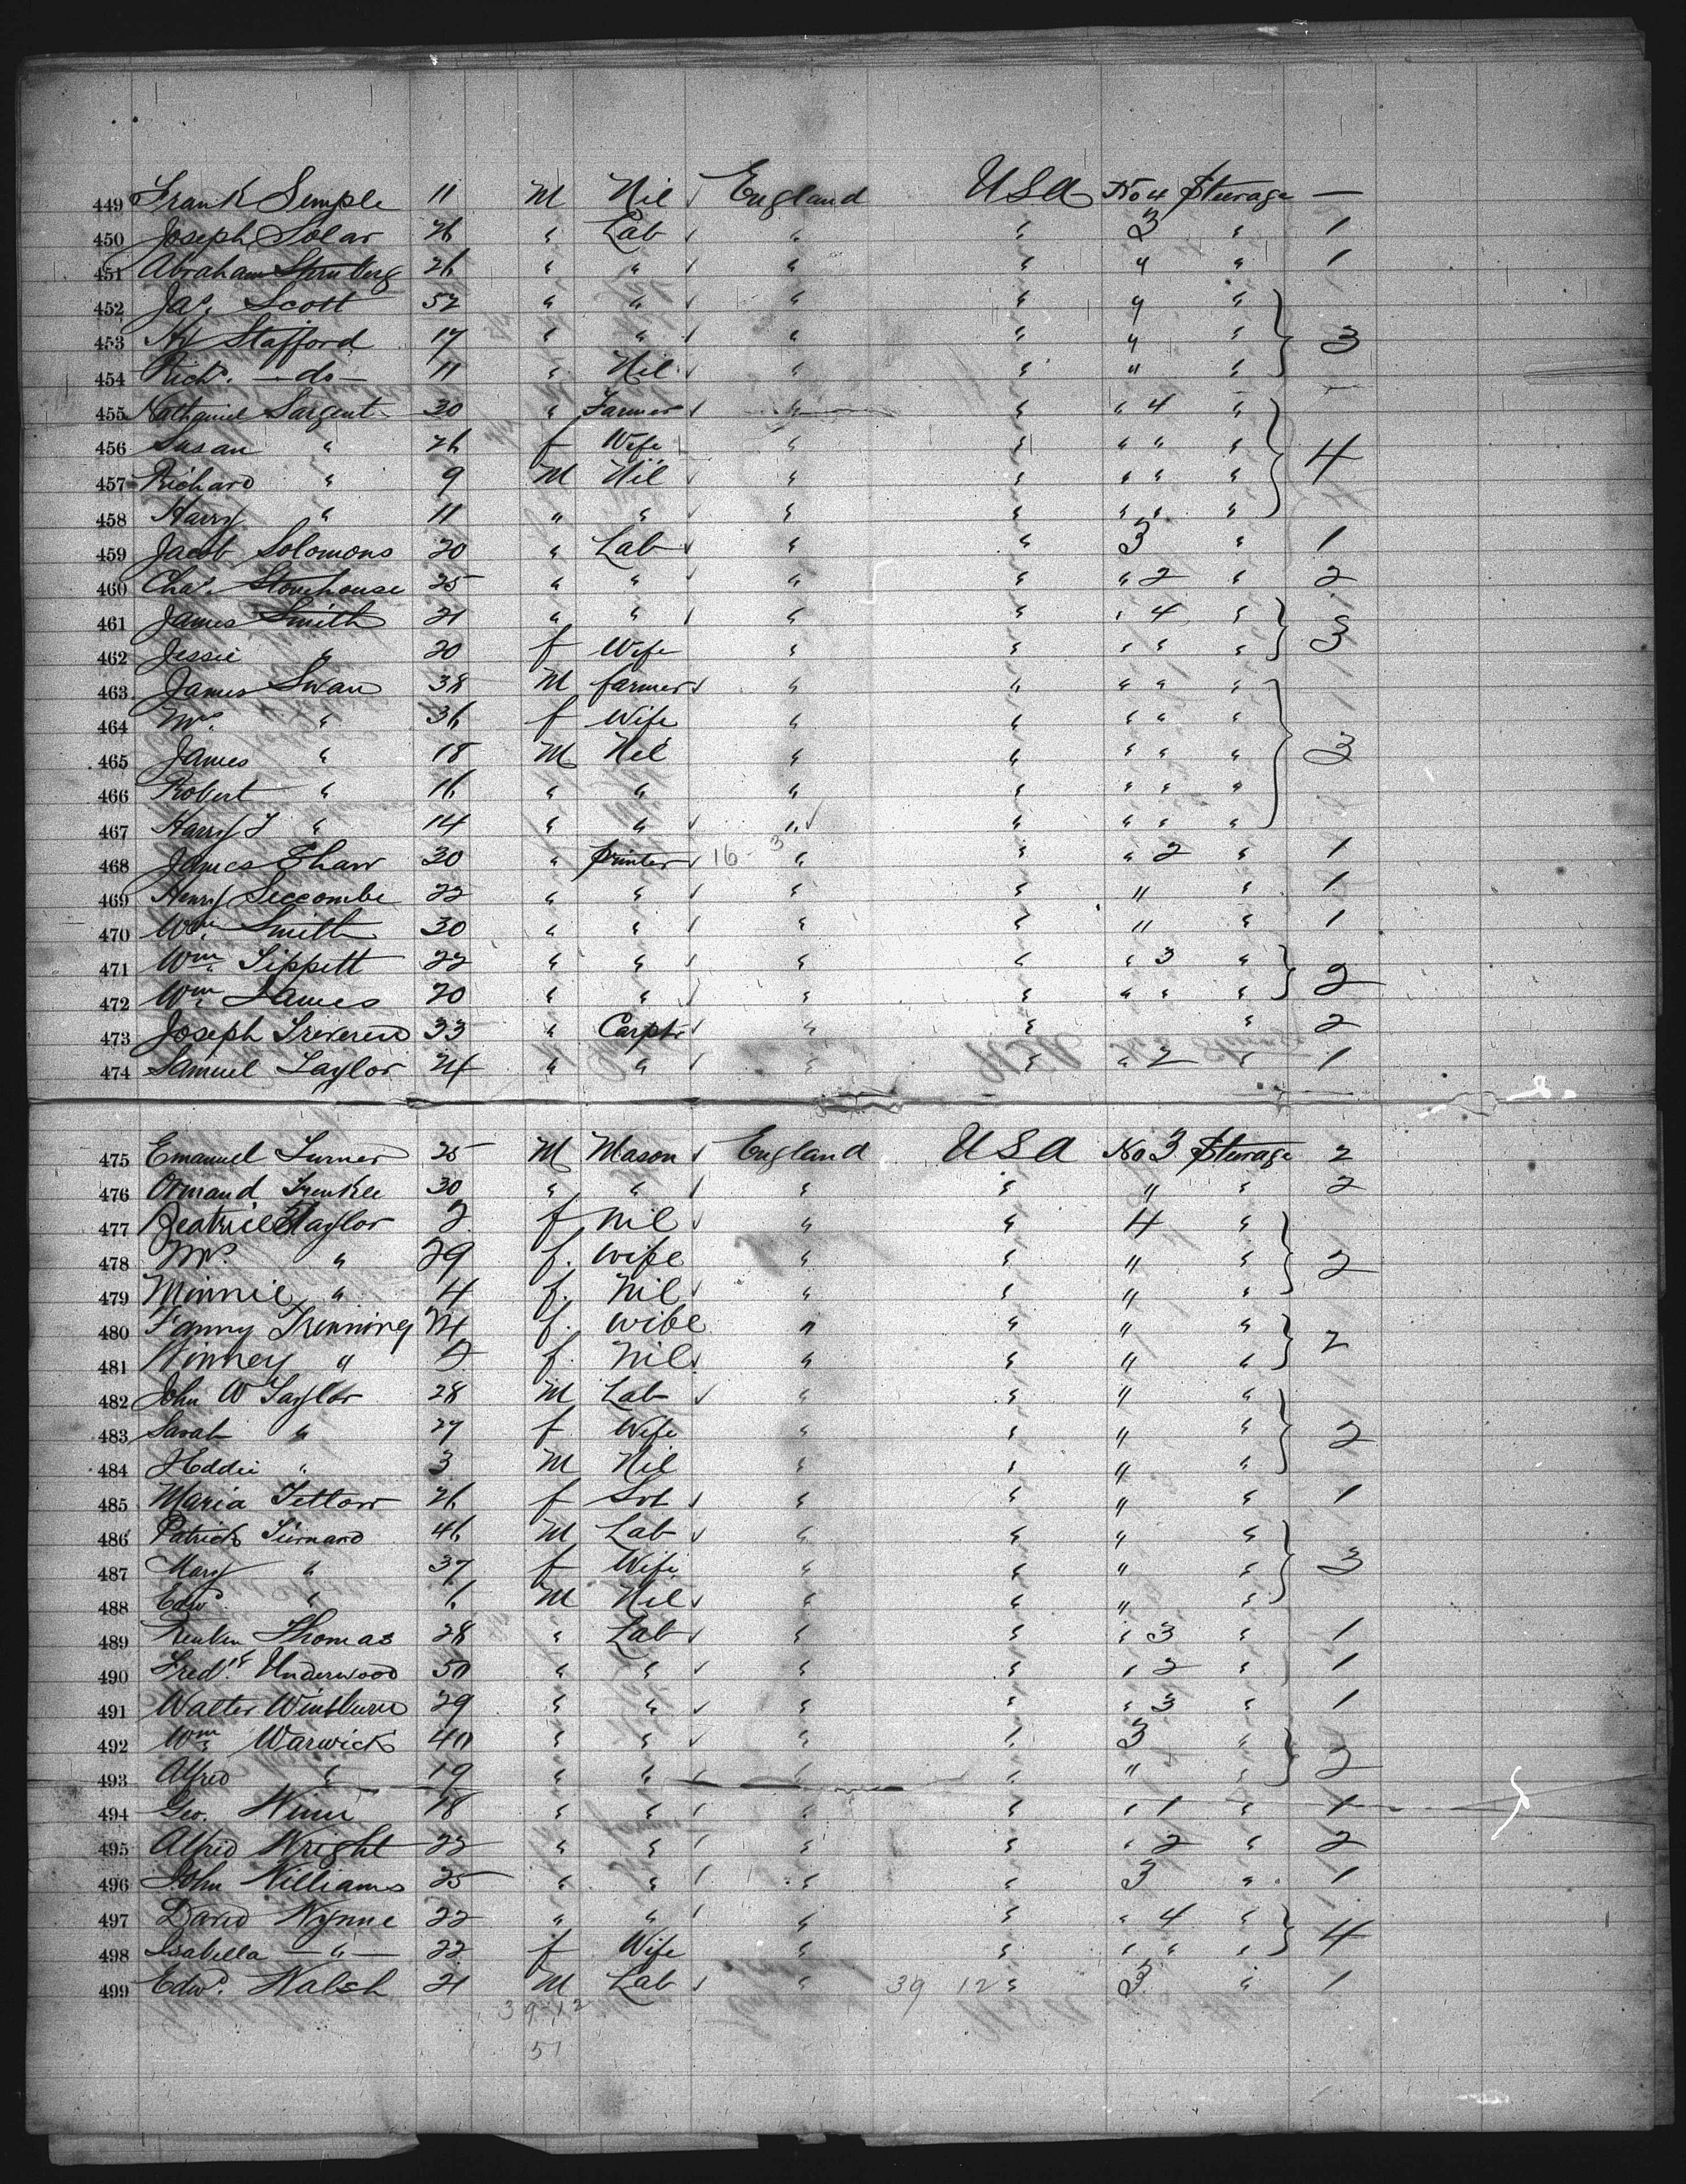 449 Frank Semple 11 M Nil ✓ England USA No 4 Steerage —
450 Joseph Solar 26 " Lab ✓ " " 3 " 1
451 Abraham 26 " " ✓ " " 4 " 1
452 Jas. Scott 52 " " ✓ " " 4 "
453 Hy Stafford 17 " " ✓ " " 4 " 3
454 Richd. — do — 11 " Nil ✓ " " " "
455 Nathaniel Sargent 30 " Farmer ✓ " " " 4 "
456 Susan " 26 f Wife " " " " "
457 Richard " 9 M Nil ✓ " " " " " 4
458 Harry " 11 " " ✓ " " " " "
459 Jacob Solomons 20 " Lab ✓ " " 3 " 1
460 Chas. Stonehouse 25 " " ✓ " " " 2 " 2
461 James Smith 21 " " ✓ " " " 4 "
462 Jessie " 20 f Wife " " " " " 3
463 James Swan 38 M farmer ✓ " " " " "
464 Mrs. " 36 f Wife " " " " "
465 James " 18 M Nil " " " " " 3
466 Robert " 16 " " " " " " "
467 Harry J " 14 " " ✓ " ✓ " " " "
468 James Shaw 30 " printer ✓ 16 - 3 " " " 2 " 1
469 Henry Seccombe 22 " " ✓ " " " " 1
470 Wm. Smith 30 " " ✓ " " " " 1
471 Wm. Tippett 22 " " ✓ " " " 3 "
472 Wm. James 20 " " ✓ " " " " " 2
473 Joseph 33 " Carptr ✓ " " " 2
474 Samuel Taylor 24 " " ✓ " " " 2 " 1
475 Emanuel Turner 25 M Mason ✓ England USA No 3 Steerage 2
476 Armand 30 " " ✓ " " " " 2
477 Beatrice Taylor 2 f Nil ✓ " " 4 "
478 Mrs. " 29 f. wife " " " " 2
479 Minnie " 4 f. Nil ✓ " " " "
480 Fanny Trenning 24 f. wife " " " "
481 Winney " 2 f. Nil ✓ " " " " 2
482 John W Taylor 28 M Lab ✓ " " " "
483 Sarah " 27 f Wife " " " " 2
484 Heddie " 3 M Nil " " " "
485 Maria Tetlow 26 f Svt ✓ " " " " 1
486 Patrick 46 M Lab ✓ " " " "
487 Mary " 37 f Wife " " " " 3
488 Edwd. " 6 M Nil ✓ " " " "
489 Reuben Thomas 28 " Lab ✓ " " " 3 " 1
490 Fredk. Underwood 50 " " ✓ " " " 2 " 1
491 Walter 29 " " ✓ " " " 3 " 1
492 Wm. Warwick 40 " " ✓ " " 3 "
493 Alfred " 19 " " ✓ " " " " 2
494 Geo. Winn 18 " " ✓ " " " 1 " 1
495 Alfred Wright 22 " " ✓ " " " 2 " 2
496 John Williams 25 " " ✓ " " 3 " 1
497 David Wynne 22 " " ✓ " " " 4 "
498 Isabella — " — 22 f Wife " " " " " 4
499 Edwd. Walsh 21 M Lab ✓ " 39 12 " 3 " 1
39-12
51